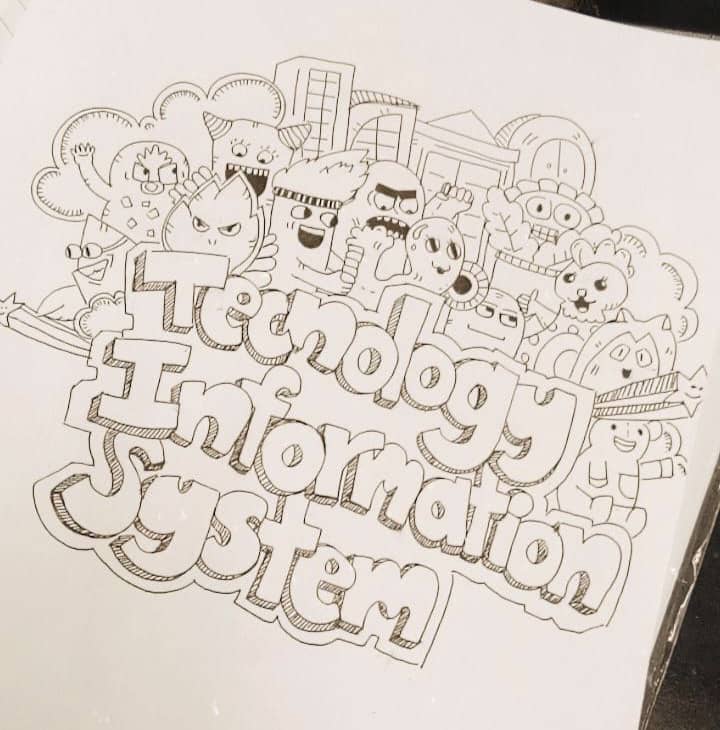 Tecnology
Information
System